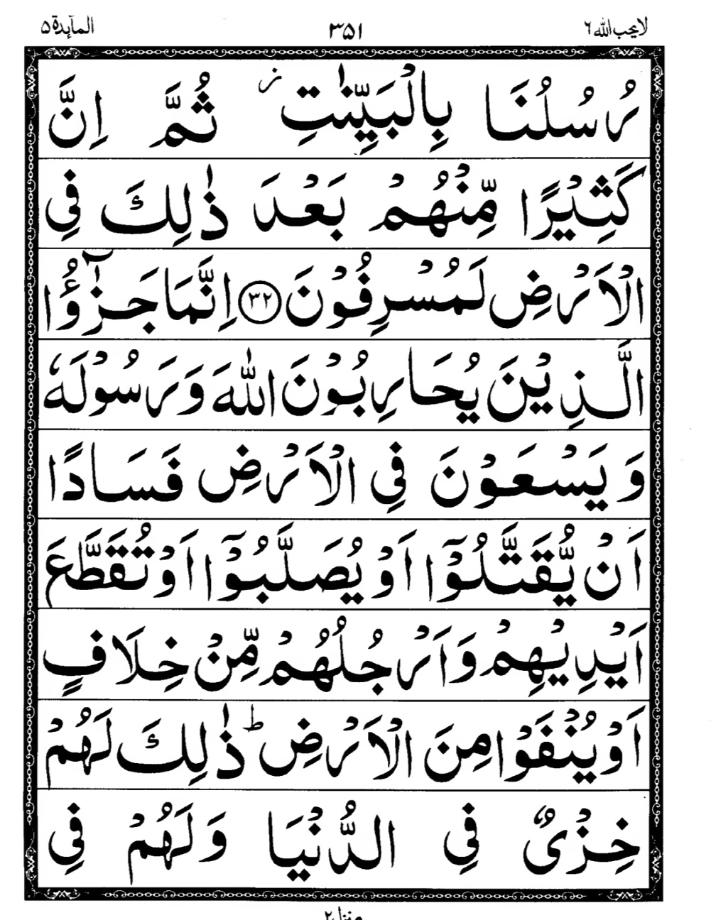 المآئدة ۵ ۳۵۱ لا یحب اللہ ۶
رُسُلُنَا بِالْبَيِّنٰتِ ز ثُمَّ اِنَّ
كَثِيْرًا مِّنْهُمْ بَعْدَ ذٰلِكَ فِي
الْاَرْضِ لَمُسْرِفُوْنَ ﴿۳۲﴾ اِنَّمَا جَزٰٓؤُا
الَّذِيْنَ يُحَارِبُوْنَ اللّٰهَ وَرَسُوْلَهٗ
وَيَسْعَوْنَ فِي الْاَرْضِ فَسَادًا
اَنْ يُّقَتَّلُوْٓا اَوْ يُصَلَّبُوْٓا اَوْ تُقَطَّعَ
اَيْدِيْهِمْ وَاَرْجُلُهُمْ مِّنْ خِلَافٍ
اَوْ يُنْفَوْا مِنَ الْاَرْضِ ؕ ذٰلِكَ لَهُمْ
خِزْيٌ فِي الدُّنْيَا وَلَهُمْ فِي
منزل ۲